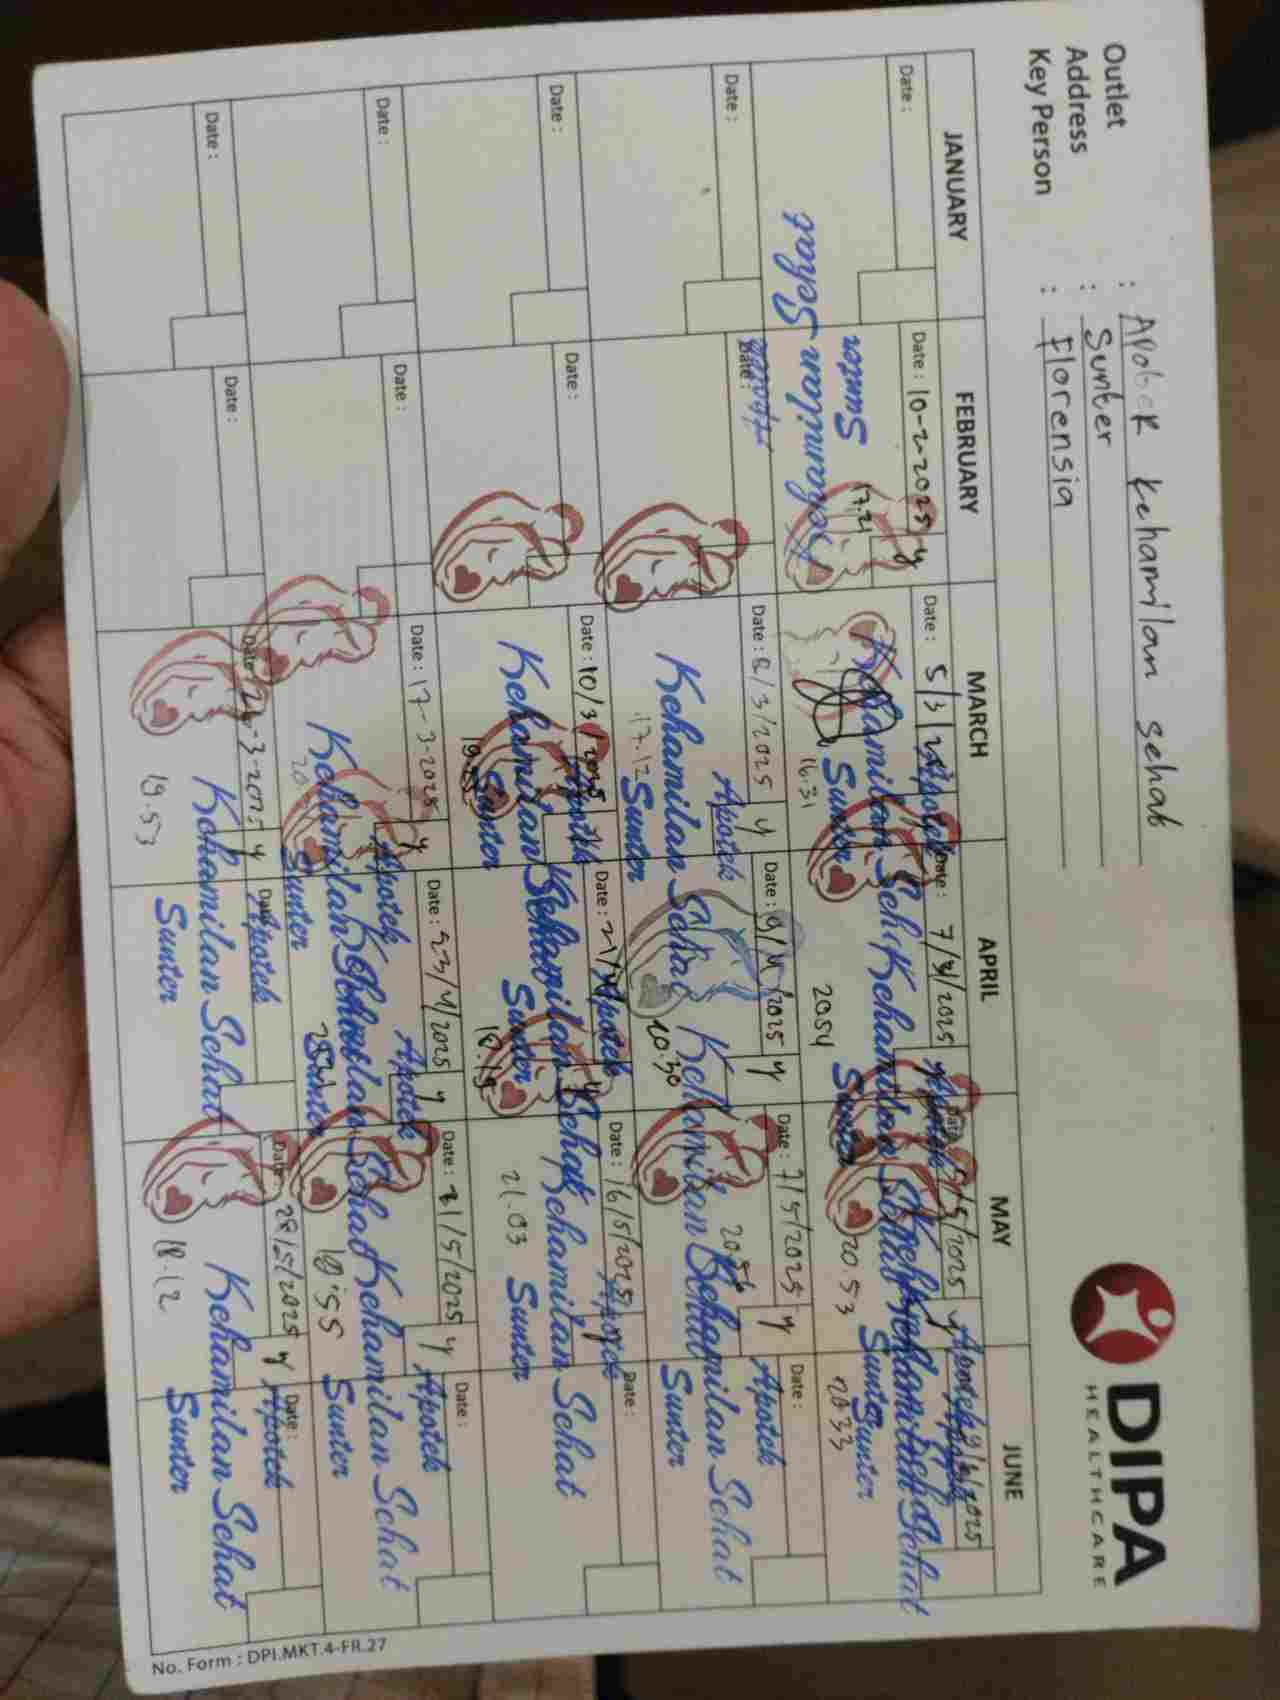 Outlet : Apotek Kehamilan Sehab
Address : Sunter
Key Person : Florensia
DIPA
HEALTHCARE
JANUARY FEBRUARY MARCH APRIL MAY JUNE
Date : Date : 10-2-2025 y Date : 5/3/25 Date : 7/4/2025 Date : 5/5/2025 y
Sunter 17.21 Kehamilan Sehat Kehamilan Sehat
Kehamilan Sehat Sunter 16.31 2054 Sunter 20.53 Sunter 2033 Sunter
Date : Date : Apotek Date : 6/3/2025 y Date : 9/4/2025 y Date : 7/5/2025 y Date :
Apotek 20.56 Apotek
Kehamilan Sehat Kehamilan Sehat Kehamilan Sehat
17.12 Sunter 10.30 Sunter
Date : Date : Date : 10/3/2025 Apotek Date : 21/4 Apotek Date : 16/5/2025 y Apotek Date :
Kehamilan Sehat Kehamilan Sehat Kehamilan Sehat
Sunter Sunter 18.15 21.03 Sunter
Date : Date : Date : 17-3-2025 y Date : 23/4/2025 y Date : 21/5/2025 y Date :
Apotek Apotek Apotek
Kehamilan Sehat Kehamilan Sehat Kehamilan Sehat
Sunter Sunter 18.55 Sunter
Date : Date : Date : -3-2025 y Date : Apotek Date : 28/5/2025 y Date : Apotek
Kehamilan Sehat Kehamilan Sehat
19.53 Sunter 18.12 Sunter
No. Form : DPI.MKT.4-FR.27